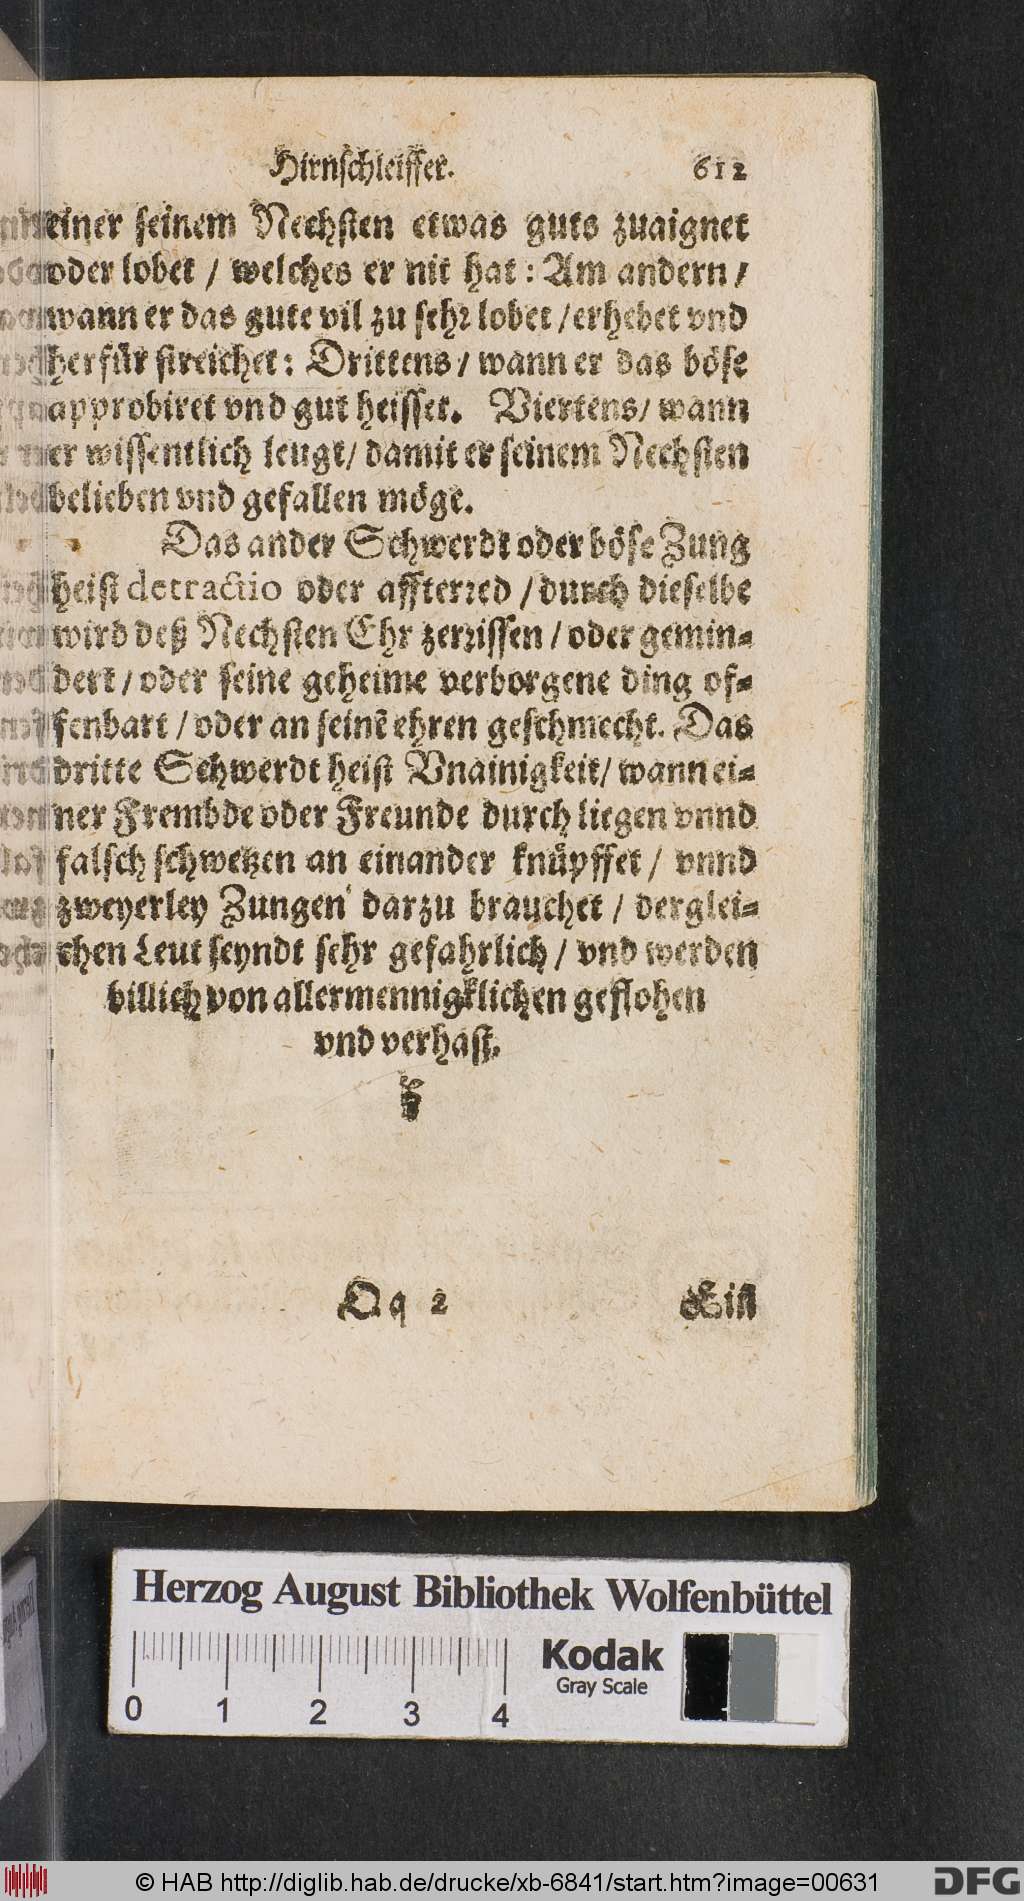 Hirnschleiffer. 612
einer seinem Nechsten etwas guts zuaignet
oder lobet / welches er nit hat : Am andern /
wann er das gute vil zu sehr lobet / erhebet vnd
herfür streichet: Drittens / wann er das böse
approbiret vnd gut heisset. Viertens / wann
er wissentlich leugt / damit er seinem Nechsten
belieben vnd gefallen möge.
Das ander Schwerdt oder böse Zung
heist detractio oder affterred / durch dieselbe
wird deß Nechsten Ehr zerrissen / oder gemin-
dert / oder seine geheime verborgene ding of-
fenbart / oder an seinē ehren geschmecht. Das
dritte Schwerdt heist Vnainigkeit / wann ei-
ner Frembde oder Freunde durch liegen vnnd
falsch schwetzen an einander knüpffet / vnnd
zweyerley Zungen darzu brauchet / derglei-
chen Leut seyndt sehr gefahrlich / vnd werden
billich von allermennigklichen geflohen
vnd verhast.
Qq 2 Ein
Herzog August Bibliothek Wolfenbüttel
Kodak
Gray Scale
0 1 2 3 4
© HAB http://diglib.hab.de/drucke/xb-6841/start.htm?image=00631
DFG